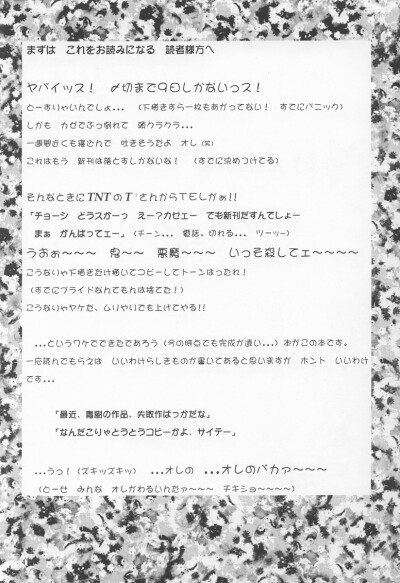 まずは これをお読みになる 読者様方へ
ヤバイッス! 〆切まで9日しかないっス!
どーすりゃいんでしょ... (下描きすら一枚もあがってない! すでにパニック)
しかも カゼでぶっ倒れて 頭クラクラ...
一週間近くも寝込んで 吐きそうだよ オレ(笑)
これはもう 新刊は落とすしかないな! (すでに決めつけてる)
そんなときにTNTのT'さんからTELしかぁ!!
「チョーシ どうスかーっ えー?カゼェー でも新刊だすんでしょー
まぁ がんばってェー」(チーン... 電話、切れる... ツーッー)
うおぉ~~~ 鬼~~ 悪魔~~~ いっそ殺してェ~~~~
こうなりゃ下描きだけ描いてコピーしてトーンはったれ!
(すでにプライドなんてもんは捨てた!)
こうなりゃヤケだ、ムリやりでも上げてやる!!
...というワケでできたであろう(今の時点でも完成が遠い...)本がこの本です。
一応読んでもらえば いいわけらしきものが書いてあると思いますが ホント いいわけ
です...
「最近、青樹の作品、失敗作ばっかだな」
「なんだこりゃとうとうコピーかよ、サイテー」
...うっ!(ズキッズキッ) ...オレの ...オレのバカァ~~~
(どーせ みんな オレがわるいんだァ~~~ チキショ~~~~)